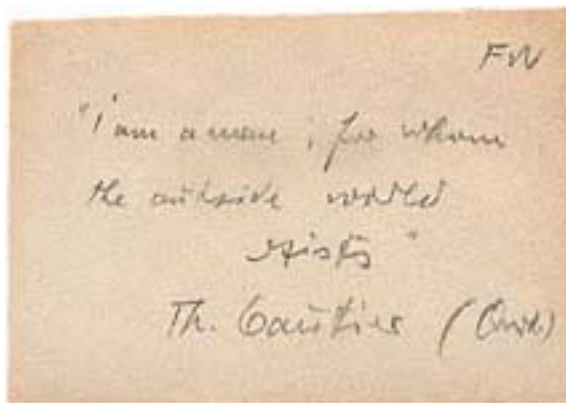 FW
"I am a man, for whom
the outside world
exists"
Th. Gautier